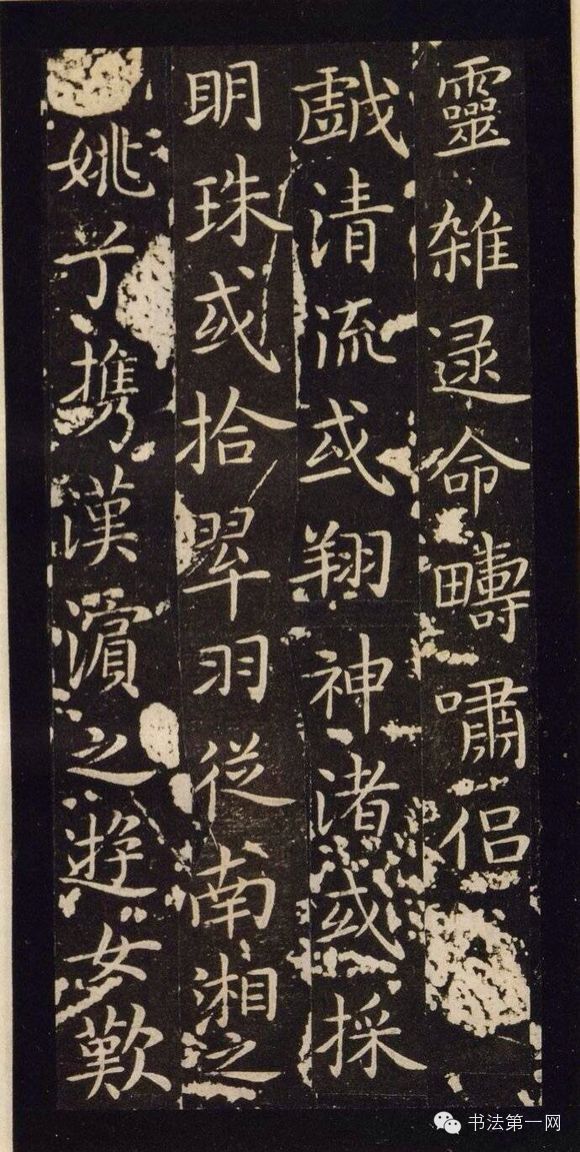 靈雜遝命疇嘯侶
戲清流或翔神渚或採
明珠或拾翠羽從南湘之
姚兮携漢濱之遊女歎
书法第一网